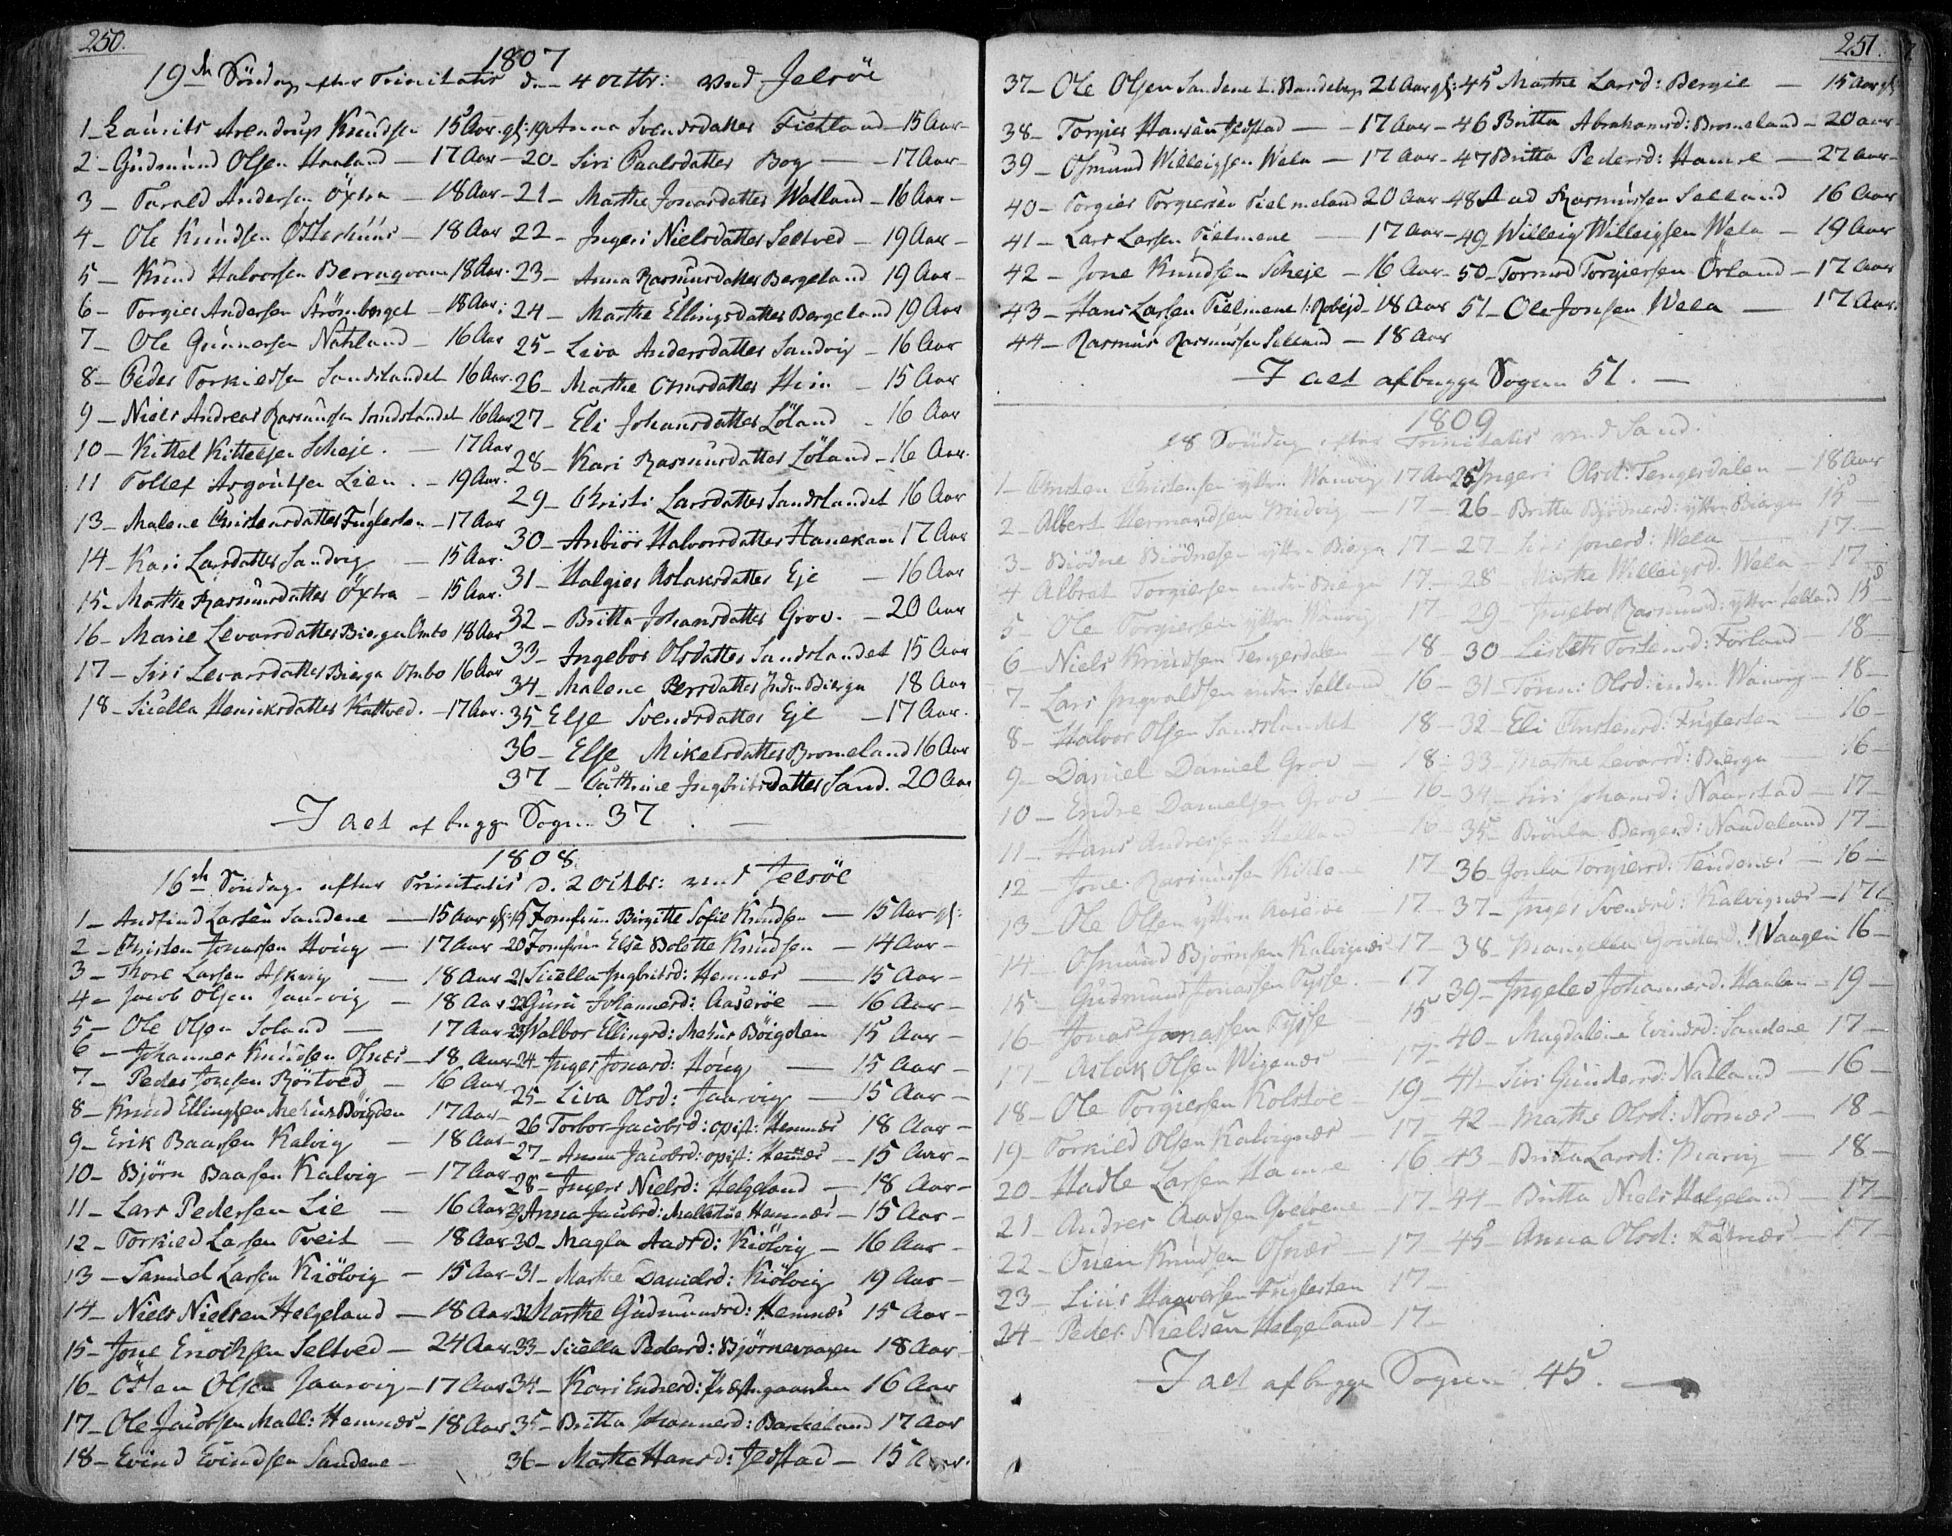 250.
1807
19de Söndag efter Trinitatis d. 4 Octbr: ved Jelsöe
1 - Laurits Arendrup Knudsen 15 Aar gl:
2 - Gudmund Olsen Haaland - 17 Aar -
3 - Tarald Andersen Öxtra - 18 Aar -
4 - Ole Knudsen Østerhuus - 18 Aar
5 - Knud Halvorsen Berraqvam 18 Aar.
6 - Torgier Andersen Strömberget - 18 Aar:
7 - Ole Gunnersen Natland - 16 Aar
8 - Peder Torkiedsen Sandslandet 16 Aar.
9 - Niels Andreas Rasmusen Sandslandet 16 Aar
10 - Kittel Kittelsen Scheje. - 17 Aar
11 Tollef Asgoutsen Lien. - 19 Aar.
13 - Malene Christensdatter Fuglesten - 17 Aar
14 - Kari Larsdatter Sandvig - 15 Aar.
15 - Marthe Rasmusdatter Öxtra - 15 Aar.
16 - Marie Levarsdatter Bierga Ombo 18 Aar
17 - Siri Levarsdatter Bierga Ombo 16 Aar
18 - Sicella Henriksdatter Kattved. - 17 Aar.
19 Anna Svensdatter Fietland - 15 Aar -
20 - Siri Paalsdatter Bog - 17 Aar -
21 - Marthe Jonasdatter Watland - 16 Aar -
22 - Ingeri Nielsdatter Seltved - 19 Aar -
23 - Anna Rasmusdatter Bergeland 19 Aar -
24 - Marthe Ellingsdatter Bergeland 19 Aar
25 - Liva Andersdatter Sandvig - 16 Aar
26 - Marthe Omsdatter Heim - 15 Aar
27 - Eli Johansdatter Löland - 16 Aar
28 - Kari Rasmusdatter Löland - 16 Aar.
29 - Christi Larsdatter Sandslandet 16 Aar
30 - Anbiör Halvorsdatter Hanekam 17 Aar
31 - Halgier Aslaksdatter Eje - 16 Aar
32 - Britta Johansdatter Grov. - 20 Aar
33 - Ingebor Olsdatter Sandslandet 15 Aar
34 - Malene Persdatter Indre Bierga 18 Aar
35 - Else Svensdatter Eje - 17 Aar.
36 - Else Mikelsdatter Bromeland 16 Aar
37 - Cathrine Ingbritsdatter Sand. 20 Aar
I alt af begge Sogne 37.
1808
16de Söndag efter Trinitatis d. 2 Octbr: ved Jelsöe
1 - Andfind Larsen Sandene - 15 Aar gl:
2 - Christen Jonassen Hoüg - 17 Aar -
3 - Thore Larsen Askvig - 18 Aar
4 - Jacob Olsen Jaarvig - 18 Aar
5 - Ole Olsen Soland - 17 Aar
6 - Johannes Knudsen Osnæs - 18 Aar
7 - Peder Jonsen Börtved - 16 Aar
8 - Knud Ellingsen Mehus Böigden 17 Aar
9 - Erik Baarsen Kalvig - 18 Aar
10 - Björn Baarsen Kalvig - 17 Aar
11 - Lars Pedersen Lie - 16 Aar
12 - Torkied Larsen Tveit - 18 Aar
13 - Samuel Larsen Kiölvig - 15 Aar
14 - Niels Nielsen Helgeland - 18 Aar
15 - Jone Enochsen Seltved - 24 Aar
16 - Östen Olsen Jaarvig - 17 Aar
17 - Ole Jacobsen Mall: Hemnæs - 18 Aar
18 - Evind Evindsen Sandene -
19 Jomfrue Birgitte Sofie Knudsen - 15 Aar gl:
20 Jomfrue Else Bolette Knudsen - 14 Aar -
21 Sicella Ingbritsd: Hemnæs - 15 Aar -
22 Guru Johannesd: Aaseröe - 16 Aar -
23 Walbor Ellingsd: Mehus Böigden 15 Aar -
24 - Inger Jonasd: Hoüg - 15 Aar -
25 - Liva Olsd: Jaarvig - 15 Aar -
26 Torbor Jacobsd: opist: Hemnæs 18 Aar -
27 - Anna Jacobsd: opist: Hemnæs - 15 Aar -
28 - Ingeri Nielsd: Helgeland - 18 Aar -
29 Anna Jacobsd: Hemnæs - 15 Aar -
30 - Magla Aadsd: Kiölvig - 16 Aar -
31 - Marthe Danielsd: Kiölvig 19 Aar -
32 Marthe Gudmunsd: Hemnæs 15 Aar -
33 - Sicella Pedersd: Björnevaagen 18 Aar -
34 - Kari Endresd: Præstegaarden 16 Aar
35 - Britta Johannesd: Barkeland 17 Aar
36 - Marthe Hansd: Jedstad - 15 Aar.
251.
37 - Ole Olsen Sandene 21 Aar gl:
38 - Torgier Hansen Jedstad - 17 Aar -
39 - Osmund Willeigsen Wela - 17 Aar -
40 - Torgier Torgiersen Fielmeland 20 Aar
41 - Lars Larsen Fielmene - 17 Aar -
42 - Jone Knudsen Scheje - 16 Aar -
43 - Hans Larsen Fielmene - 18 Aar
44 - Rasmus Rasmusen Selland - 18 Aar
45 Marthe Larsd: Bergie - 15 Aar gl
46 Britta Abrahamsd: Bromeland - 20 aar
47 Britta Pedersd: Hamre - 22 aar -
48 Aad Rasmussen Selland 16 Aar
49 Willeig Willeigsen Wela - 19 Aar
50 - Tormod Torgiersen Örland - 17 Aar
51 - Ole Jonsen Wela - 17 Aar.
I alt af begge Sogne 51. -
1809
18 Söndag efter Trinitatis ved Sand.
1 - Christen Christensen yttre Wanvig 17 Aar
2 - Albert Hermandsen - 17 -
3 - Biödne Biödnesen yttre Bierga 17 -
4 Albret Torgiersen indre Bierga 17 -
5 Ole Torgiersen yttre Wanvig 17
6 - Niels Knudsen Tengesdalen - 18 -
7 - Lars Ingvaldsen indre Selland 16 -
8 - Halvor Olsen Sandslandet 18 -
9 - Daniel Daniel Grov - 18 -
10 - Endre Danielsen Grov - 16 -
11 - Hans Andersen Helland 16 -
12 - Jone Rasmussen 17 -
13 - Ole Olsen yttre Aaseröe 17 -
14 Osmund Bjornsen Kalvignæs 17 -
15 - Gudmund Jonassen Tysse. - 17
16 - Jonas Jonassen Tysse 15
17 - Aslak Olsen Wigenæs 17 -
18 - Ole Torgiersen Kolstoe 19 -
19 - Torkild Olsen Kalvignæs - 17 -
20 - Hadle Larsen Hamre 16
21 - Andres Aadsen - 17 -
22 - Ouen Knudsen Osnæs - 17 -
23 - Haavorsen Fuglesten 17 -
24 - Peder Nielsen Helgeland - 17 -
25 Ingeri Olsd: Tengesdalen - 18 Aar
26 - Britta Biödnesd: yttre Bierga 15 -
27 - Siri Jonesd: Wela 17 -
28 - Marthe Willeigsd: Wela - 17 -
29 - Ingebor Rasmusd: yttre Selland 15 -
30 - Lisbeth Torstensd: Förland 18 -
31 - Tönne: Olsd: indre Wanvig - 18 -
32 - Eli Christensd: Fuglesten - 16 -
33 - Marthe Levarsd: Bierga - 16 -
34 - Siri Johansd: Naarstad - 17 -
35 - Brönla Bergesd: Nandeland 17 -
36 - Gonla Torgiersd: Tendenes - 16 -
37 - Inger Svendsd: Kalvignæs - 17
38 - Waagen 16 -
39 - Ingeleo Johannesd: Haalan - 19 -
40 - Magdalene Evindsd: Sandene 17 -
41 - Siri Gundersd: Natland - 16 -
42 - Marthe Olsd: Nornæs - 18 -
43 - Britta Larsd: - 18 -
44 - Britta Niels Helgeland - 17 -
45 - Anna Olsd: - 17 -
I alt af begge Sogne 45. -